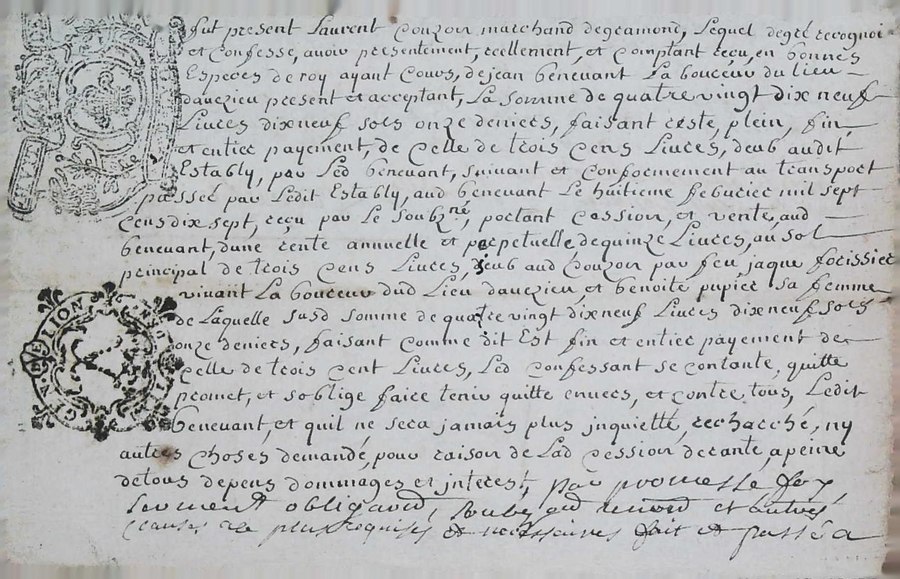 fut present Laurent Couzon marchand degramond, Lequel degré recognoi
et Confesse, avoir presentement, reellement, et Comptant reçu, en bonnes
Especes de roy ayant Cours, de jean benevant La boureur du lieu
dauezieu present et acceptant, La somme de quatre vingt dix neuf
Liures dixneuf sols onze deniers, faisant reste, plein, fin,
et entier payement, de celle de trois cens Liures, deub audit
Estably, par Led benevant, suivant et Conformement au transport
passé par Ledit Estably, aud benevant Le huitieme feburier mil sept
Cens dix sept, reçu par Le soubzné, portant Cession, et vente, aud
benevant, dune rente annuelle et perpetuelle dequinze Liures, au sol
principal de trois Cens Liures, deub aud Couzon par feu jaque forissier
vivant La boureur dud Lieu dauezieu, et benoite pupier sa femme
de Laquelle susd somme de quatre vingt dixneuf Liures dixneuf sols
onze deniers, faisant comme dit Est fin et entier payement de
Celle de trois Cent Liures, Led Confessant se contante, quitte
promet, et soblige faire tenir quitte envers, et contre, tous, Ledit
benevant, et quil ne sera jamais plus jnquietté, rechacché, ny
autres choses demandé, pour raison de Lad cession derante, apeine
detous depens dommages et jnterest, par promesse foy
serment obligaon, et autres
clauses plus requises et necessaires fait et passé a
G. DE LION